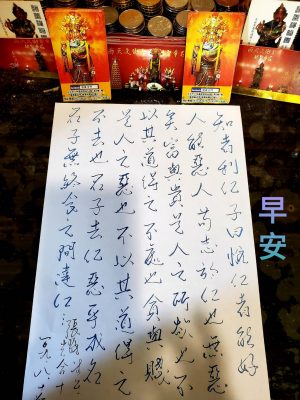 知者利仁 子曰惟仁者能好
人能惡人 苟志於仁也無惡
矣富與貴是人之所欲也不
以其道得之不處也貧與賤
是人之惡也不以其道得之
不去也君子去仁惡乎成名
君子無終食之間違仁
一九八
早安